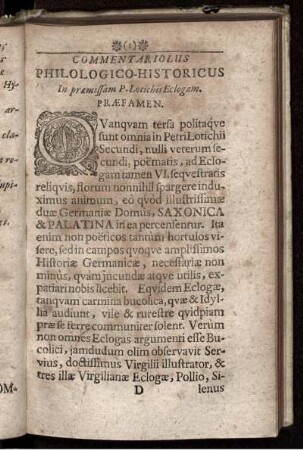 (1)
COMMENTARIOLUS
PHILOLOGICO-HISTORICUS
In præmissam P. Lotichii Eclogam.
PRÆFAMEN.
QVanqvam tersa politaqve
sunt omnia in Petri Lotichii
Secundi, nulli veterum se-
cundi, poëmatis, ad Eclo-
gam tamen VI. seqvestratis
reliqvis, florum nonnihil spargere indu-
ximus animum, eo qvòd illustrissimæ
duæ Germaniæ Domus, SAXONICA
& PALATINA in ea percensentur. Ita
enim non poëticos tantùm hortulos vi-
sere, sed in campos qvoqve amplissimos
Historiæ Germanicæ, necessariæ non
minùs, qvàm jucundæ atqve utilis, ex-
patiari nobis licebit. Eqvidem Eclogæ,
tanqvam carmina bucolica, qvæ & Idyl-
lia audiunt, vile & rurestre qvidpiam
præ se ferre communiter solent. Verùm
non omnes Eclogas argumenti esse Bu-
colici, jamdudum olim observavit Ser-
vius, doctissimus Virgilii illustrator, &
tres illæ Virgilianæ Eclogæ, Pollio, Si-
D
lenus